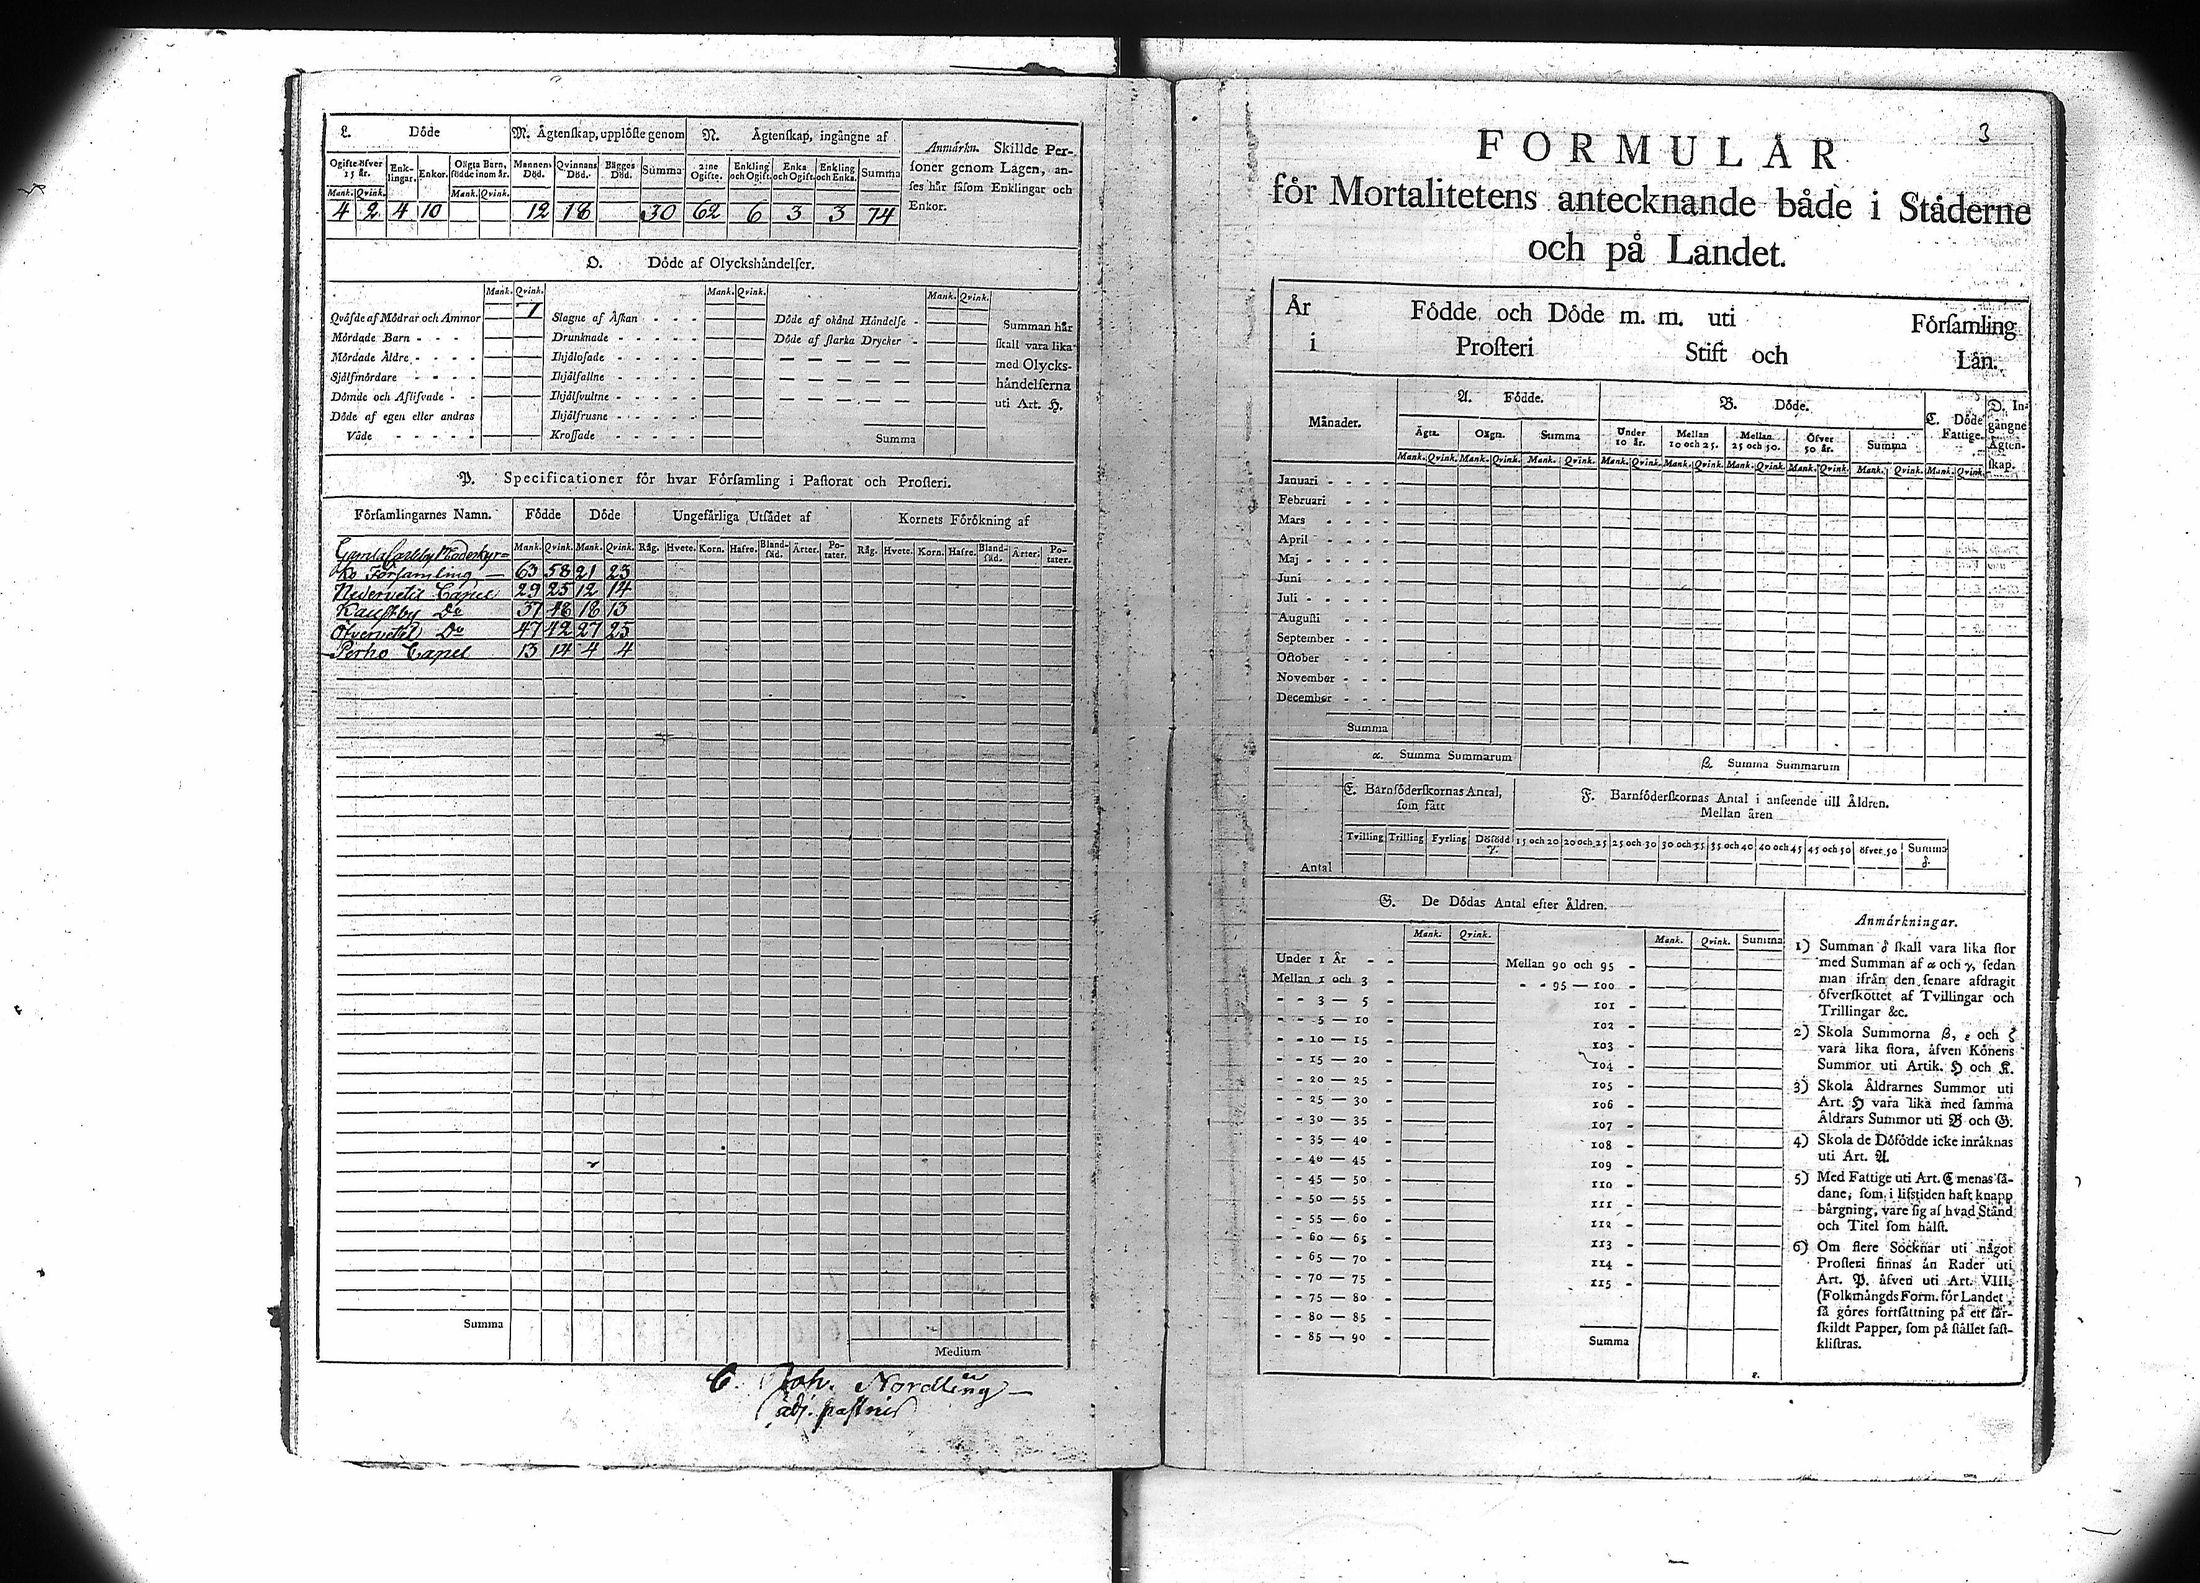 L. Döde
M. Ägtenskap, uplöste genom
N. Ägtenskap, ingångne af
Ogifte öfver 15 år. Enklingar. Enkor. Oägta Barn, födde inom år. Mannens Död. Qvinnans Död. Bägges Död. Summa 2:ne Ogifte. Enkling och Ogift. Enka och Ogift. Enkling och Enka. Summa
Mank. Qvink. Mank. Qvink.
4 2 4 10 12 18 30 62 6 3 3 74
Anmärkn. Skillde Per-
soner genom Lagen, an-
ses här såsom Enklingar och
Enkor.
O. Döde af Olyckshändelser.
Mank. Qvink. Mank. Qvink. Mank. Qvink.
Qväfde af Mödrar och Ammor 7
Mördade Barn
Mördade Äldre
Sjålfmördare
Dömde och Aflifvade
Döde af egen eller andras
Våde
Slagne af Åskan
Drunknade
Ihjälosade
Ihjälfallne
Ihjälsvultne
Ihjälfrusne
Krossade
Döde af okänd Händelse
Döde af starka Drycker
Summa
Summan här
skall vara lika
med Olycks-
händelserna
uti Art. H.
P. Specificationer för hvar Församling i Pastorat och Prosteri.
Församlingarnes Namn. Födde Döde Ungefärliga Utsådet af Kornets Förökning af
Mank. Qvink. Mank. Qvink. Råg. Hvete. Korn. Hafre. Blandsäd. Ärter. Potater. Råg. Hvete. Korn. Hafre. Blandsäd. Ärter. Potater.
Gamla Carleby Moderkyr=
ko Församling 63 58 21 23
Nedervetil Capell 29 25 12 14
Kaustby Do 37 48 18 13
Öfvervetil Do 47 42 27 25
Perho Capel 13 14 4 4
Summa
Medium
Joh. Nordling
adj. pastoris
3
FORMULÄR
för Mortalitetens antecknande både i Städerne
och på Landet.
År Födde och Döde m. m. uti Församling
i Prosteri Stift och Län.
Månader. A. Födde. B. Döde. C. Döde Fattige. D. Ingångne Ägtenskap.
Ägta. Oägn. Summa Under 10 år. Mellan 10 och 25. Mellan 25 och 50. Öfver 50 år. Summa
Mank. Qvink. Mank. Qvink. Mank. Qvink. Mank. Qvink. Mank. Qvink. Mank. Qvink. Mank. Qvink. Mank. Qvink. Mank. Qvink.
Januari
Februari
Mars
April
Maj
Juni
Juli
Augusti
September
October
November
December
Summa
α. Summa Summarum β. Summa Summarum
E. Barnföderskornas Antal,
som fått
F. Barnföderskornas Antal i anseende till Åldren.
Mellan åren
Tvilling Trilling Fyrling Döfödd γ. 15 och 20 20 och 25 25 och 30 30 och 35 35 och 40 40 och 45 45 och 50 öfver 50 Summa δ.
Antal
G. De Dödas Antal efter Åldren.
Mank. Qvink. Mank. Qvink. Summa
Under 1 År
Mellan 1 och 3
3 — 5
5 — 10
10 — 15
15 — 20
20 — 25
25 — 30
30 — 35
35 — 40
40 — 45
45 — 50
50 — 55
55 — 60
60 — 65
65 — 70
70 — 75
75 — 80
80 — 85
85 — 90
Mellan 90 och 95
95 — 100
101
102
103
104
105
106
107
108
109
110
111
112
113
114
115
Summa
ε.
Anmärkningar.
1) Summan δ skall vara lika stor
med Summan af α och γ, sedan
man ifrån den senare afdragit
öfverskottet af Tvillingar och
Trillingar &c.
2) Skola Summorna β, ε och ζ
vara lika stora, äfven Könens
Summor uti Artik. H och K.
3) Skola Åldrarnes Summor uti
Art. H vara lika med samma
Åldrars Summor uti B och G.
4) Skola de Döfödde icke inräknas
uti Art. A.
5) Med Fattige uti Art. C menas så-
dane, som i lifstiden haft knapp
bärgning, vare sig af hvad Stånd
och Titel som hälst.
6) Om flere Socknar uti något
Prosteri finnas än Rader uti
Art. P. äfven uti Art. VIII.
(Folkmängds Form. för Landet,
så göres fortsättning på ett sär-
skildt Papper, som på stället fast-
klistras.